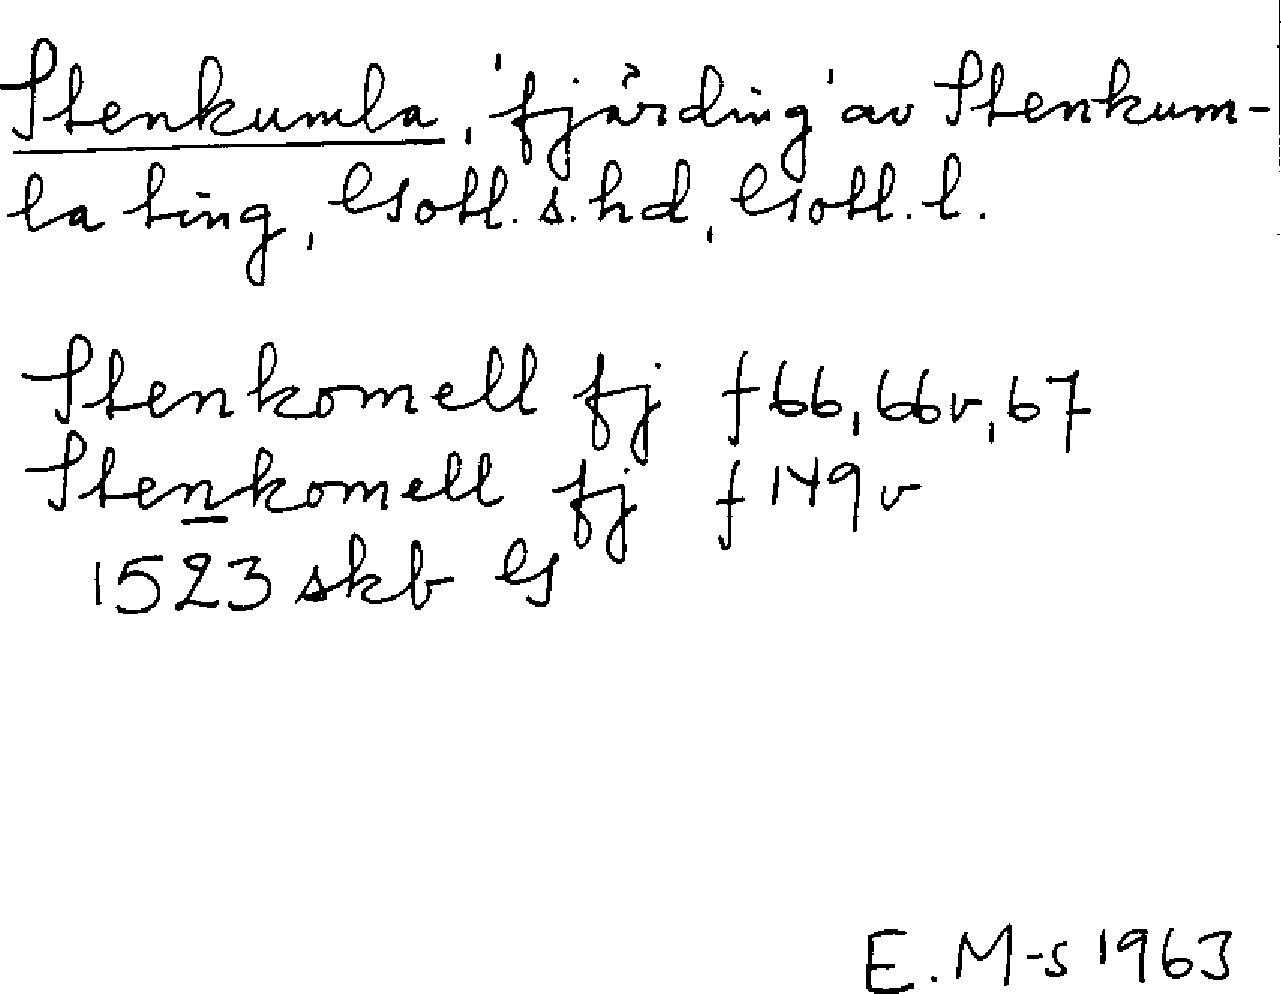 Stenkumla, 'fjärding' av Stenkum-
la ting, Gotl. s. hd, Gotl. l.
Stenkomell fj f 66, 66v, 67
Stenkomell fj f 149v
1523 skb G
E. M-s 1963